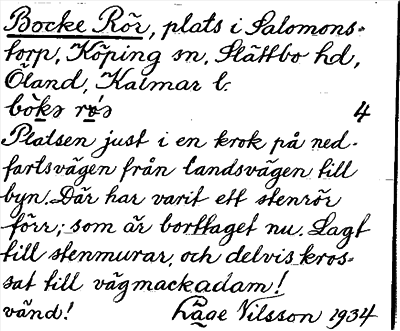 Bocke Rör, plats i Salomons-
torp, Köping sn, Slättbo hd,
Öland, Kalmar l.
4
Platsen just i en krok på ned-
fartsvägen från landsvägen till
byn. Där har varit ett stenrör
förr; som är borttaget nu. Lagt
till stenmurar, och delvis kros-
sat till vägmackadam!
vänd! Åage Nilsson 1934